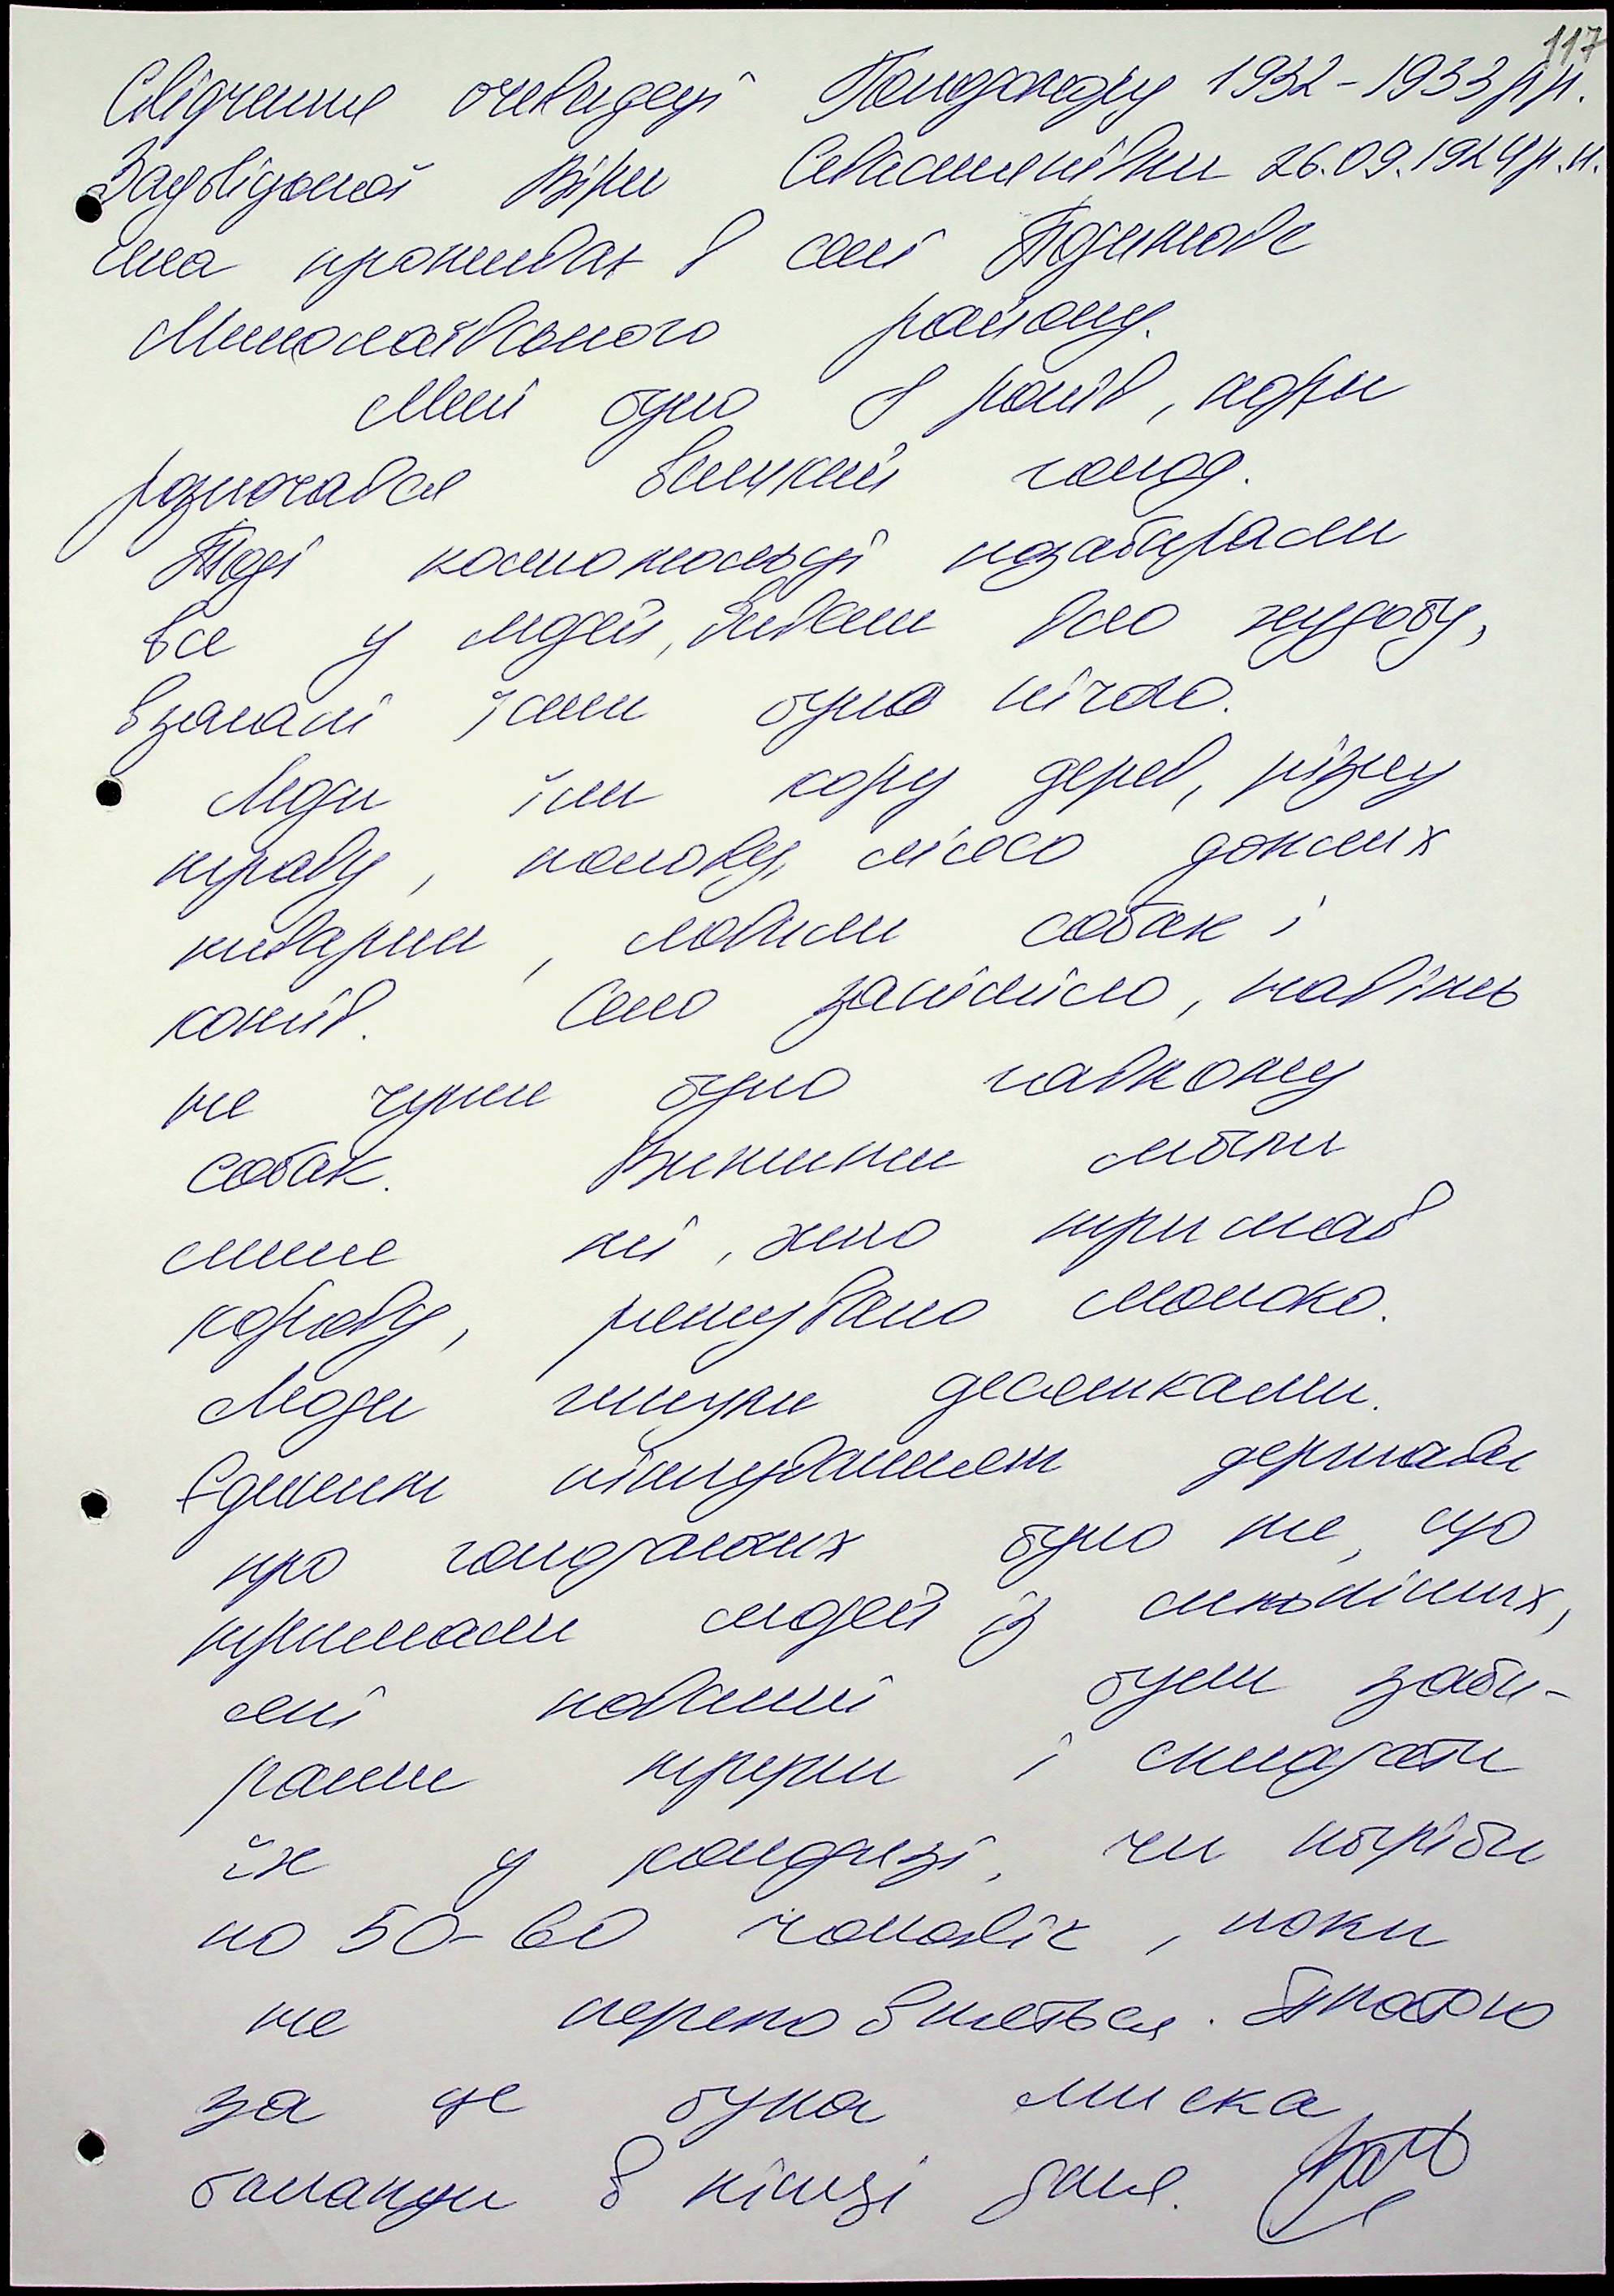 117
Свідчення очевидеці Голодомору 1932-1933 р.р.
Віри Севастянівни 26.09.1924 р.н.
яка проживає в селі
Миколаївського району.
Мені було 8 років, коли
розпочався великий голод.
Тоді комсомольці позабирали
все у людей, всю худобу,
взагалі їсти було нічого.
Люди їли кору дерев, різну
траву, полову, мʼясо дохлих
тварин, ловили собак і
котів. Село занімїло, навіть
не чути було гавкоту
собак. Вижити могли
лише ті, хто тримав
корову, рятувало молоко.
Люди гинули десятками.
Єдиним піклуванням держави
про голодаючих було те, що
тримали людей із сильніших,
які повинні були заби-
рати трупи і складати
їх у колодязі, чи погріби
по 50-60 чоловік, поки
не переповниться. Платою
за це була миска
баланди в кінці дня.